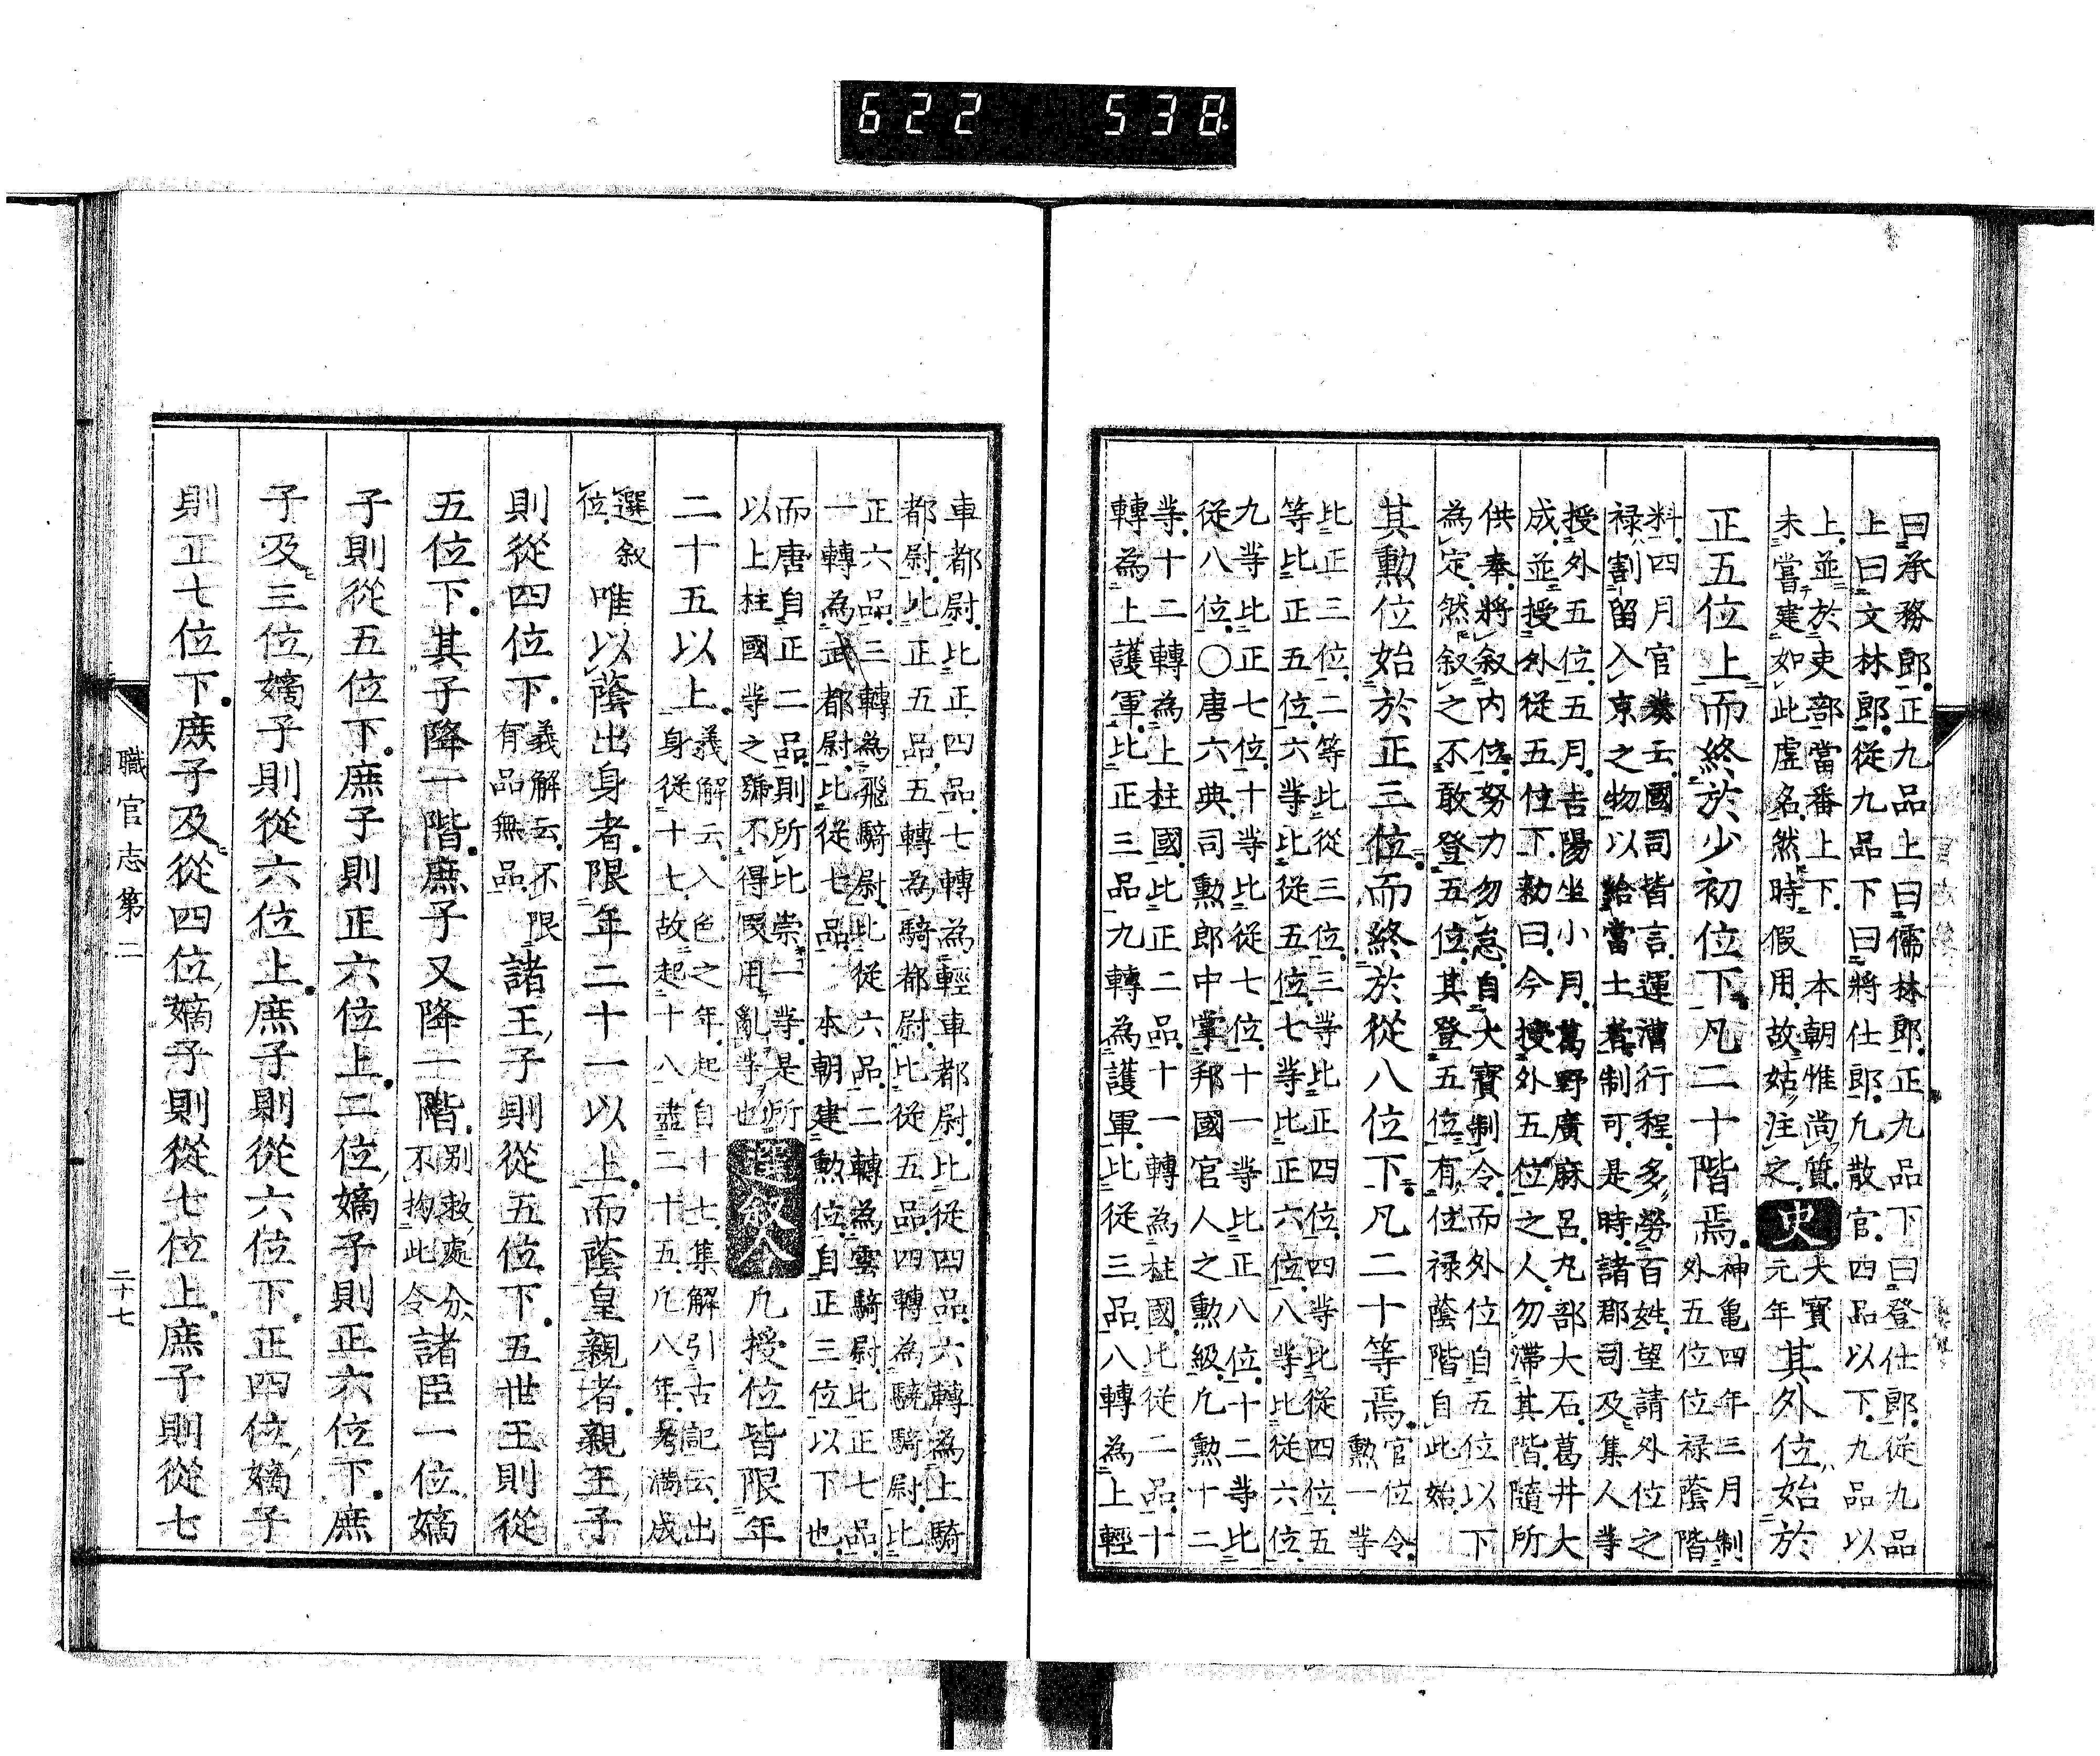 曰承務郎正九品上曰儒林郎正九品下曰登仕郎從九品
上曰文林郎從九品下曰將仕郎凡散官四品以下九品以
上並於吏部當番上下 本朝惟尚質
未嘗建如此虛名然時假用故姑注之
史 大寶元年 其外位始於
正五位上而終於少初位下凡二十階焉 神亀四年三月制
外五位位禄蔭階
料四月官奏云國司皆言運漕行程多勞百姓望請外位之
禄割留入京之物以給當土者制可是時諸郡司及集人等
授外五位五月吉陽坐小月葛野廣麻呂丸部大石葛井大
成並授外從五位下勅曰今授外五位之人勿滯其階隨所
供奉將叙内位努力勿怠自大寶制令而外位自五位以下
為定然叙之不敢登五位其登五位有位禄蔭階自此始
其勲位始於正三位而終於從八位下凡二十等焉 官位令
勲一等
比正三位二等比從三位三等比正四位四等比從四位五
等比正五位六等比從五位七等比正六位八等比從六位
九等比正七位十等比從七位十一等比正八位十二等比
從八位○唐六典司勲郎中掌邦國官人之勲級凡勲十二
等十二轉為上柱國比正二品十一轉為柱國比從二品十
轉為上護軍比正三品九轉為護軍比從三品八轉為上輕
車都尉比正四品七轉為輕車都尉比從四品六轉為上騎
都尉比正五品五轉為騎都尉比從五品四轉為驍騎尉比
正六品三轉為飛騎尉比從六品二轉為雲騎尉比正七品
一轉為武都尉比從七品 本朝建勲位自正三位以下也
而唐自正二品則所比崇一等是所
以上柱國等之號不得假用亂等也
選叙令 凡授位皆限年
二十五以上 義解云入色之年起自十七集解引古記云出
身從十七故起十八盡二十五凡八年考滿成
選叙
位 唯以蔭出身者限年二十一以上而蔭皇親者親王子
則從四位下 義解云不限
有品無品 諸王子則從五位下五世王則從
五位下其子降一階庶子又降一階 別敕處分
不拘此令 諸臣一位嫡
子則從五位下庶子則正六位上二位嫡子則正六位下庶
子及三位嫡子則從六位上庶子則從六位下正四位嫡子
則正七位下庶子及從四位嫡子則從七位上庶子則從七
職官志第二
二十七
622 538